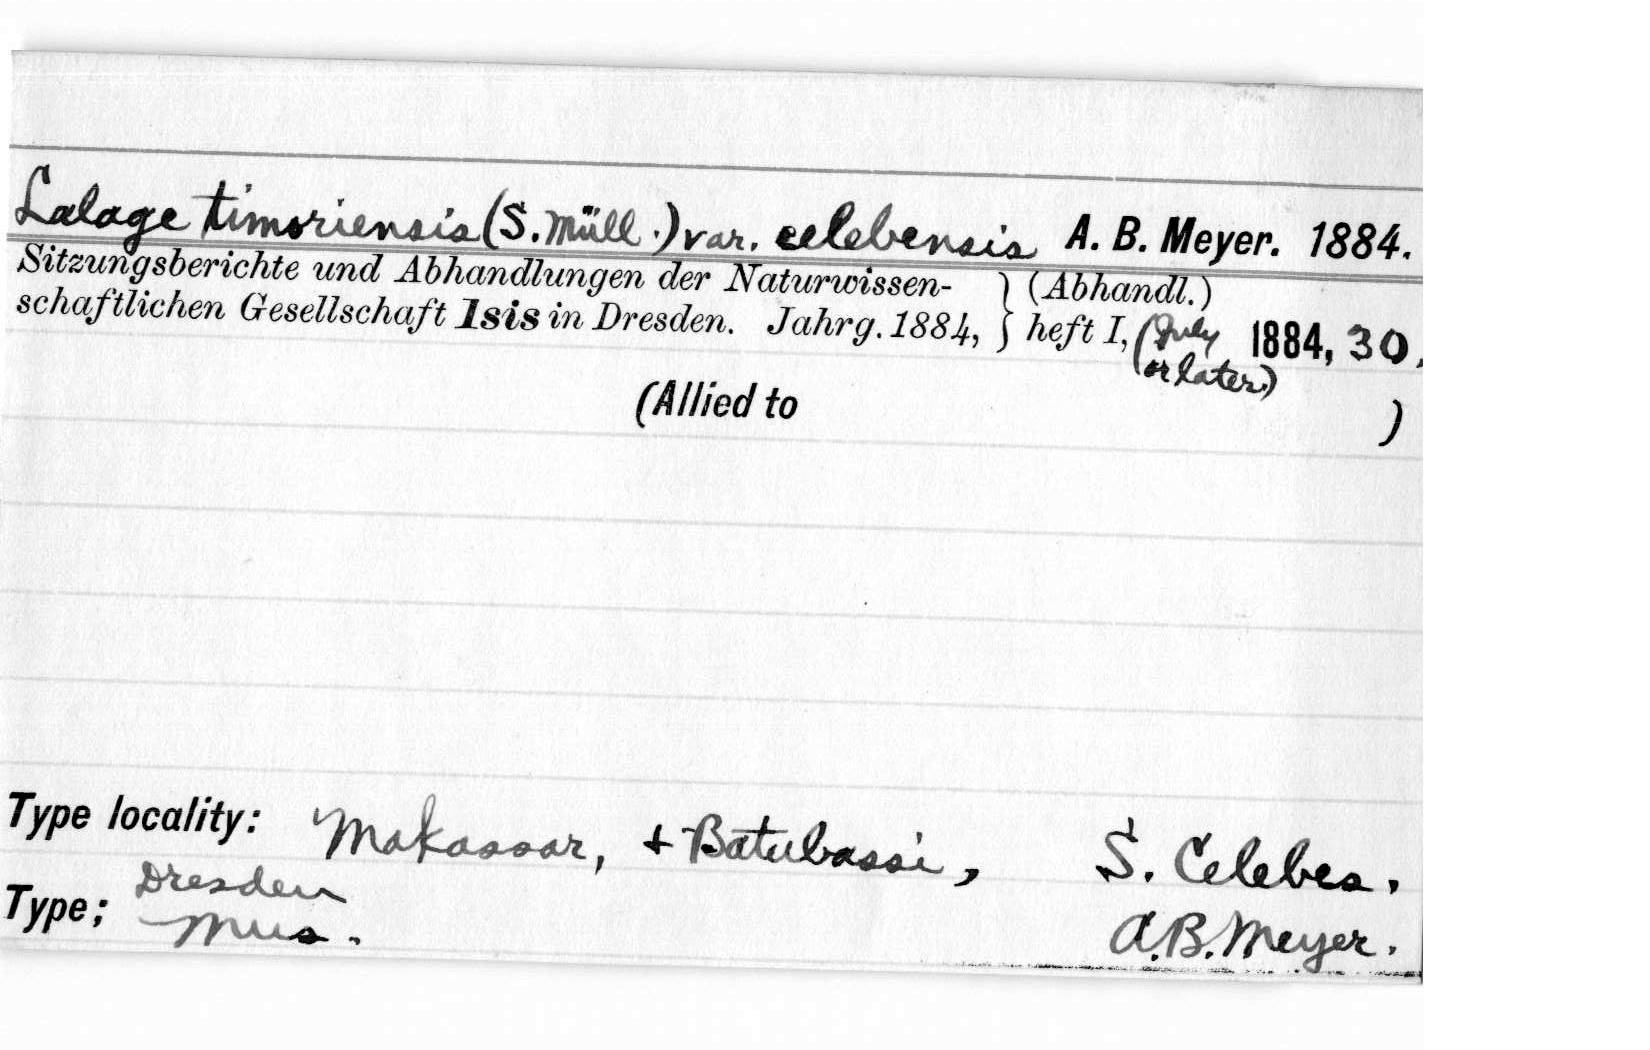 Lalage timoriensis (S. Müll.) var. celebensis A. B. Meyer. 1884.
Sitzungsberichte und Abhandlungen der Naturwissen- } (Abhandl.)
schaftlichen Gesellschaft Isis in Dresden. Jahrg. 1884, } heft I, (July 1884, 30,
or later)
(Allied to )
Type locality: Makassar, + Batubassi, S. Celebes.
Type; Dresden
Mus. A.B. Meyer.